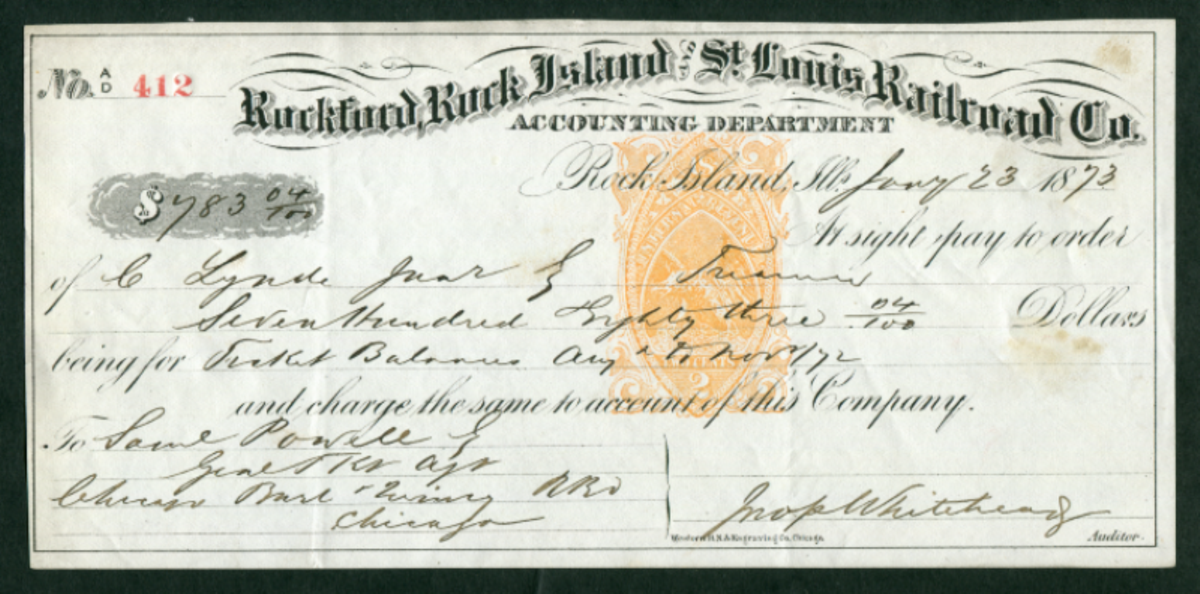 No. A D 412
Rockford, Rock Island and St. Louis Railroad Co.
ACCOUNTING DEPARTMENT
Rock Island, Ills. Jany 23 1873
$ 783 04/100
At sight pay to order
of C Lynde Junr Treasurer
Seven Hundred Eighty three 04/100 Dollars
being for Ticket Balances Aug to Nov /72
and charge the same to account of this Company.
To Saml Powell
Genl Tkt Agt
Chicago Burl & Quincy RRd
Chicago
Jno P Whitehead
Auditor.
Western B.N. & Engraving Co. Chicago.